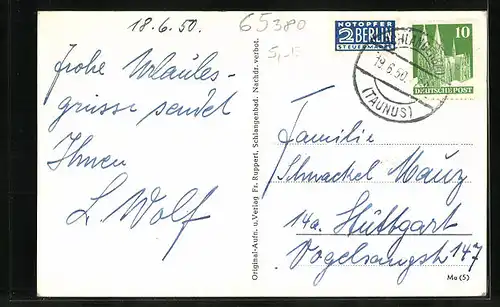 18.6.50.
65380
5,-F
Frohe Urlaubs-
grüsse sendet
Ihnen
L Wolf
Original-Aufn. u. Verlag Fr. Ruppert, Schlangenbad. Nachdr. verbot.
NOTOPFER
2 BERLIN
STEUERMARKE
19.6.50.
(TAUNUS)
10
DEUTSCHE POST
Familie
Schnackel Mauz
14a. Stuttgart
Vogelsangstr 147
Mo (5)